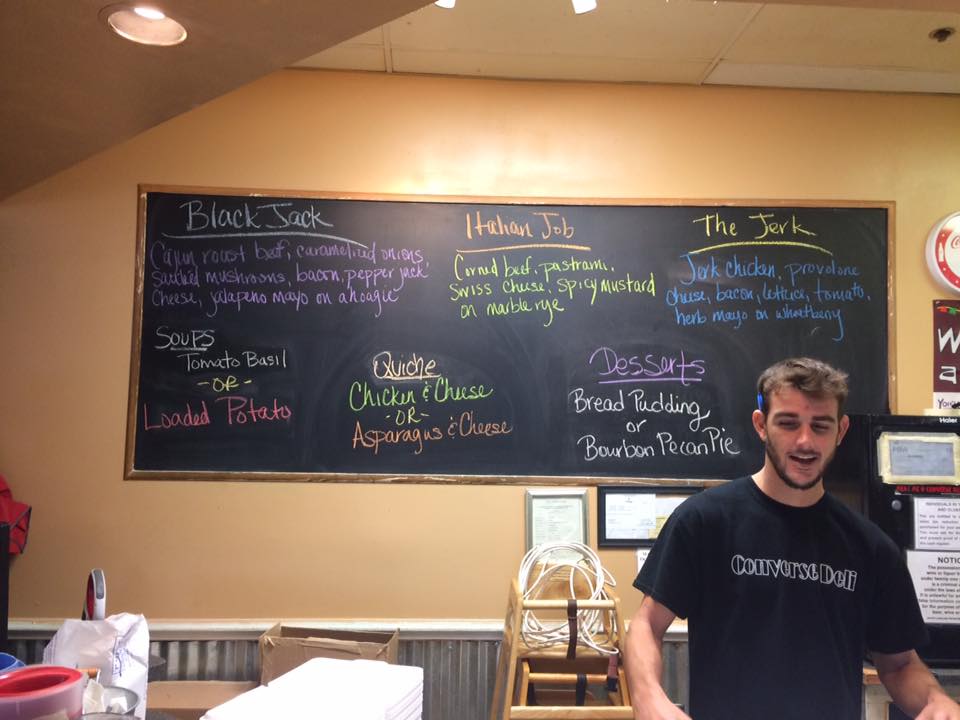 Black Jack
Cajun roast beef, caramelized onions,
sautéed mushrooms, bacon, pepper jack
cheese, jalapeno mayo on a hoagie
Italian Job
Corned beef, pastrami,
Swiss cheese, spicy mustard
on marble rye
The Jerk
Jerk chicken, provolone
cheese, bacon, lettuce, tomato,
herb mayo on wheatberry
Soups
Tomato Basil
-OR-
Loaded Potato
Quiche
Chicken & Cheese
-OR-
Asparagus & Cheese
Desserts
Bread Pudding
or
Bourbon Pecan Pie
Converse Deli
Haier
NOTIC